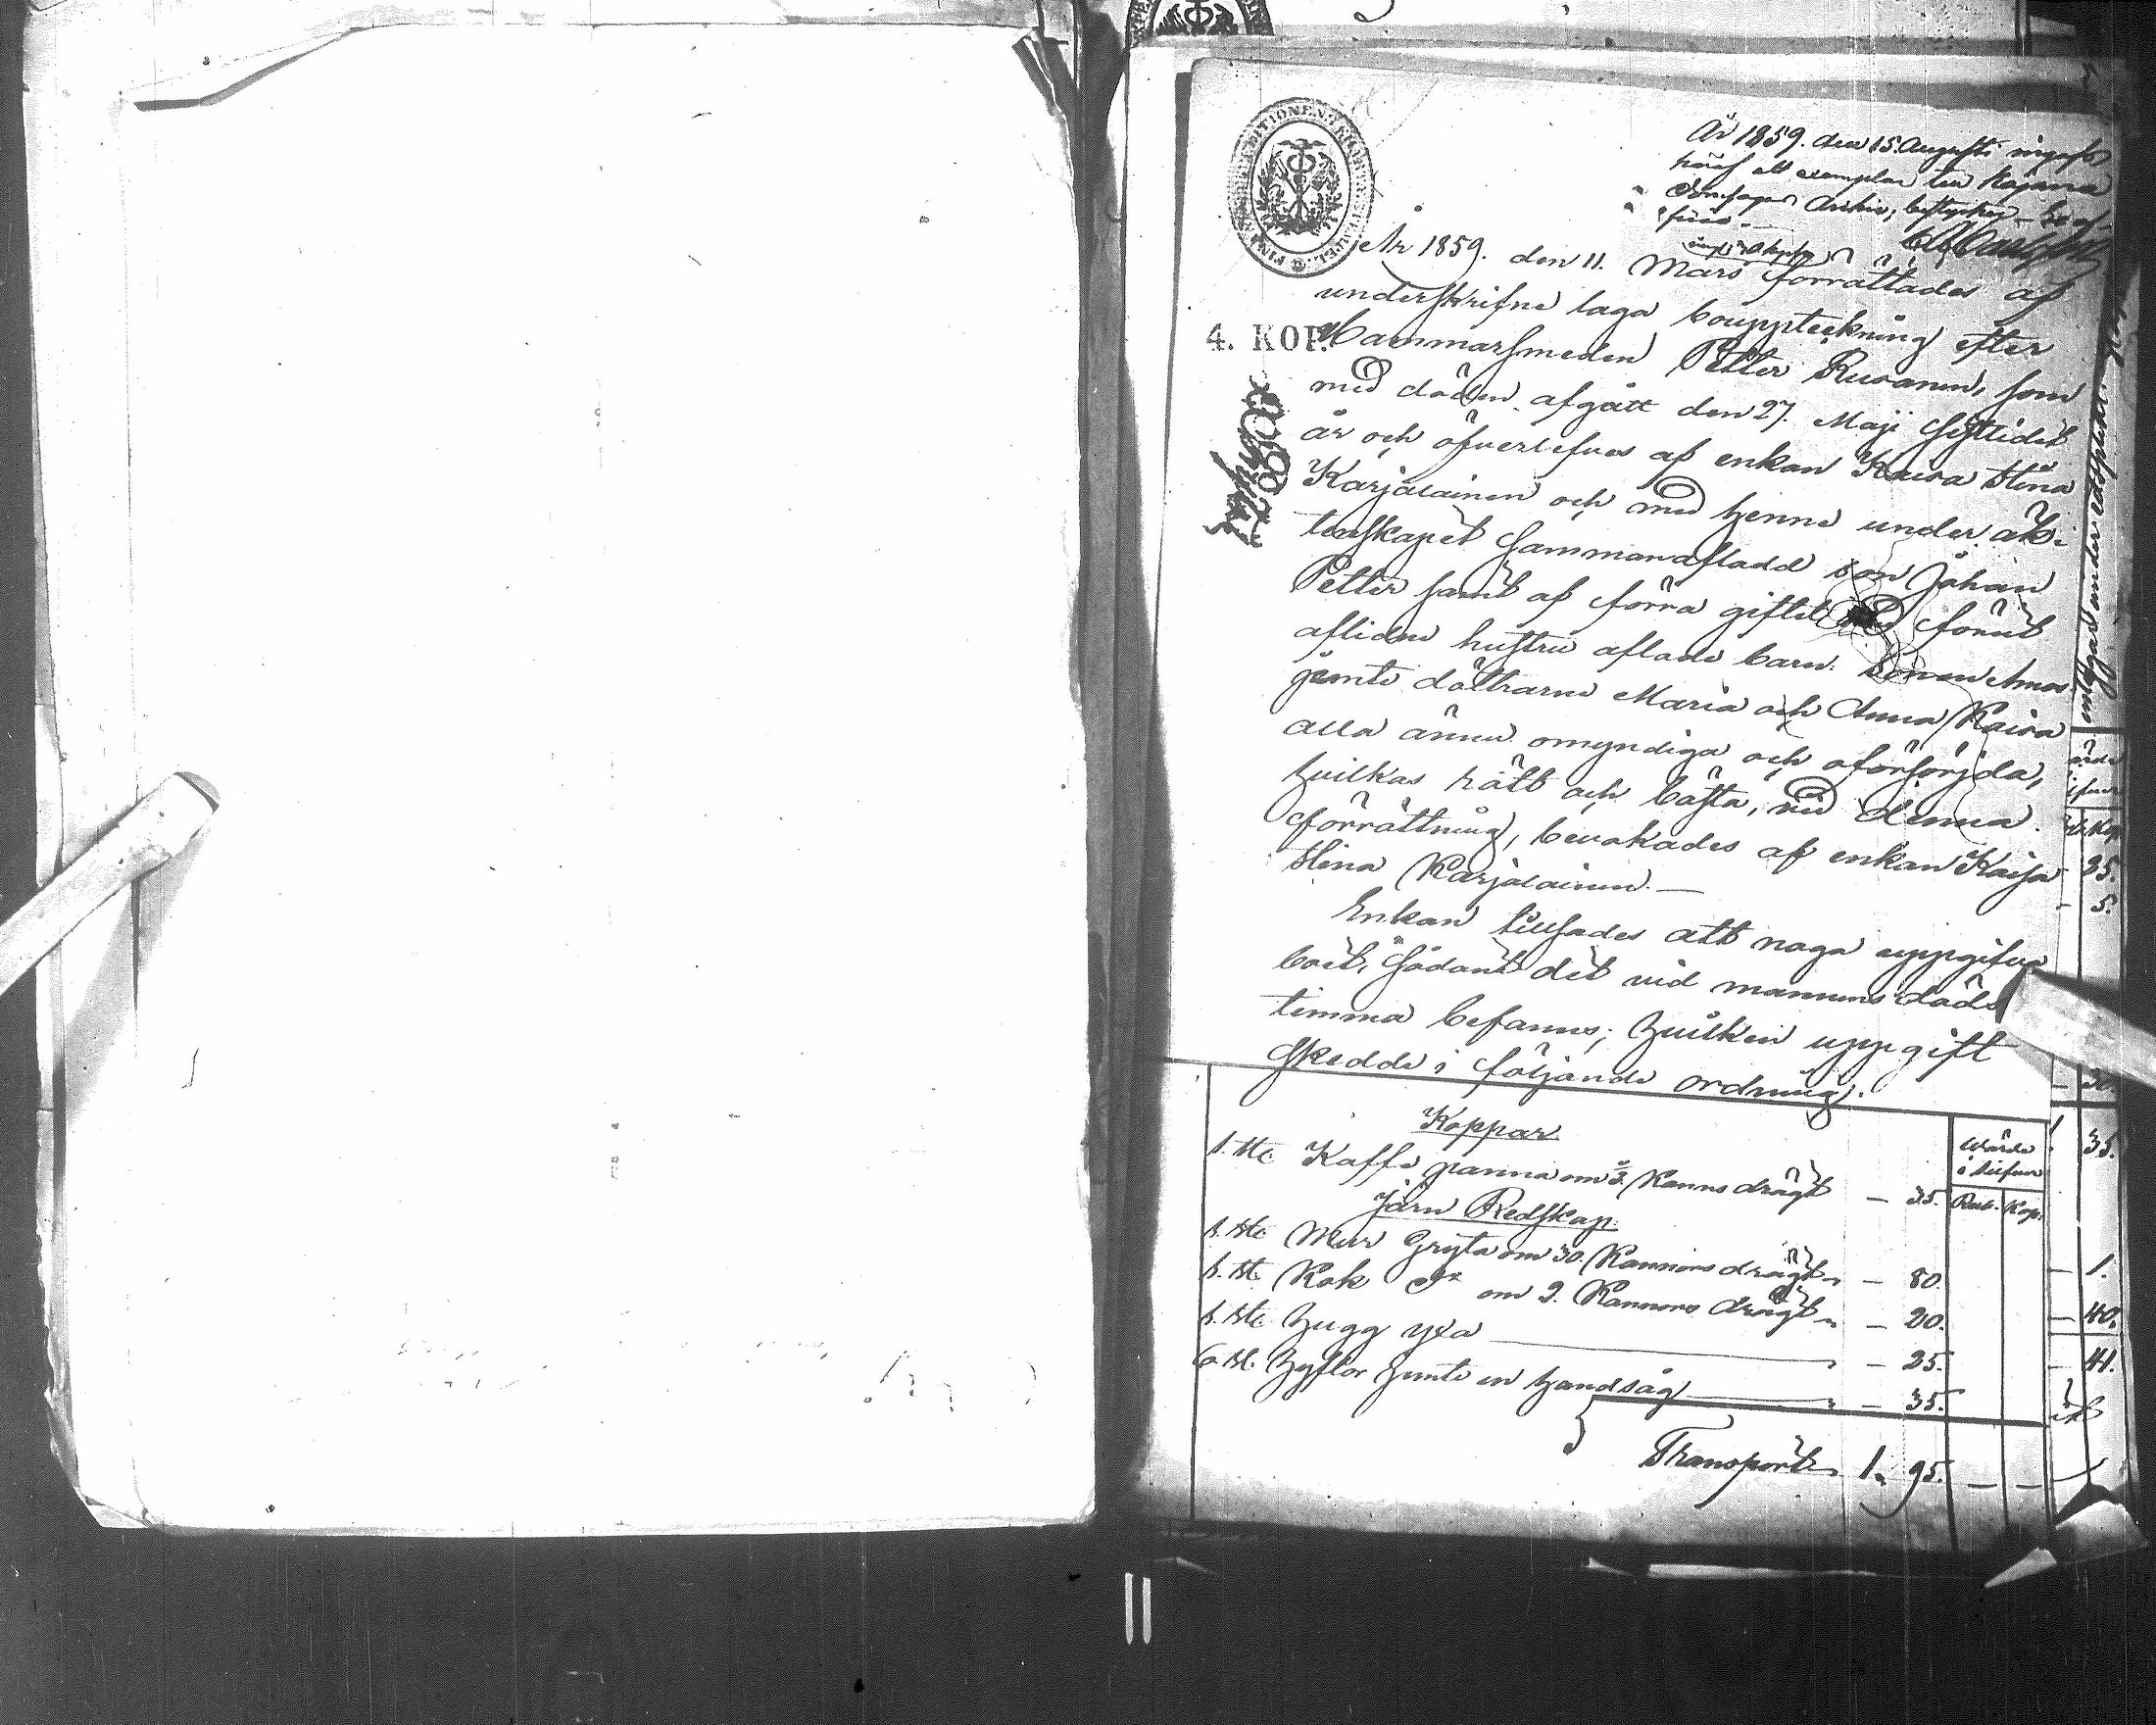 År 1859. den 15 Augusti ingafs
häraf ett exemplar till Kajana
Domsagas Archiv; betygar
År 1859. den 11. Mars förrättades af
underskrifne laga bouppteckning efter
4. KOP.
Hammarsmeden Petter Rusanen, som
med döden afgått den 27. Maji sistledit
år och öfverlefves af enkan Kaisa Stina
Karjalainen och med henne under äk-
tenskapet sammanaflad son Johan
Petter samt af förra giftet med förut
aflidne hustru aflade barn: Sonen Amos
jemte döttrarne Maria och Anna Kaisa
alla ännu omyndiga och oförsörjda,
hvilkas rätt och bästa, vid denna
förrättning, bevakades af enkan Kaisa
Stina Karjalainen. —
Enkan tillsades att noga uppgifva
boet, sådant det vid mannens döds
timma befanns; hvilken uppgift
skedde i följande ordning:
Koppar
Wärde
i silfver
Rub. Kop.
1. st. Kaffe panna om 3. Kannes drägt — 35.
Järn Redskap
1. st. Mur Gryta om 30. Kannors drägt „ — 80.
1. st. Kok d:o om 2. Kannors drägt „ — 20.
1. st. Hugg yxa — „ — 25.
6. st. Hyflor jemte en handsåg — „ — 35.
Transport „ 1. 95. — —
35.
5.
35.
1.
40.
41.